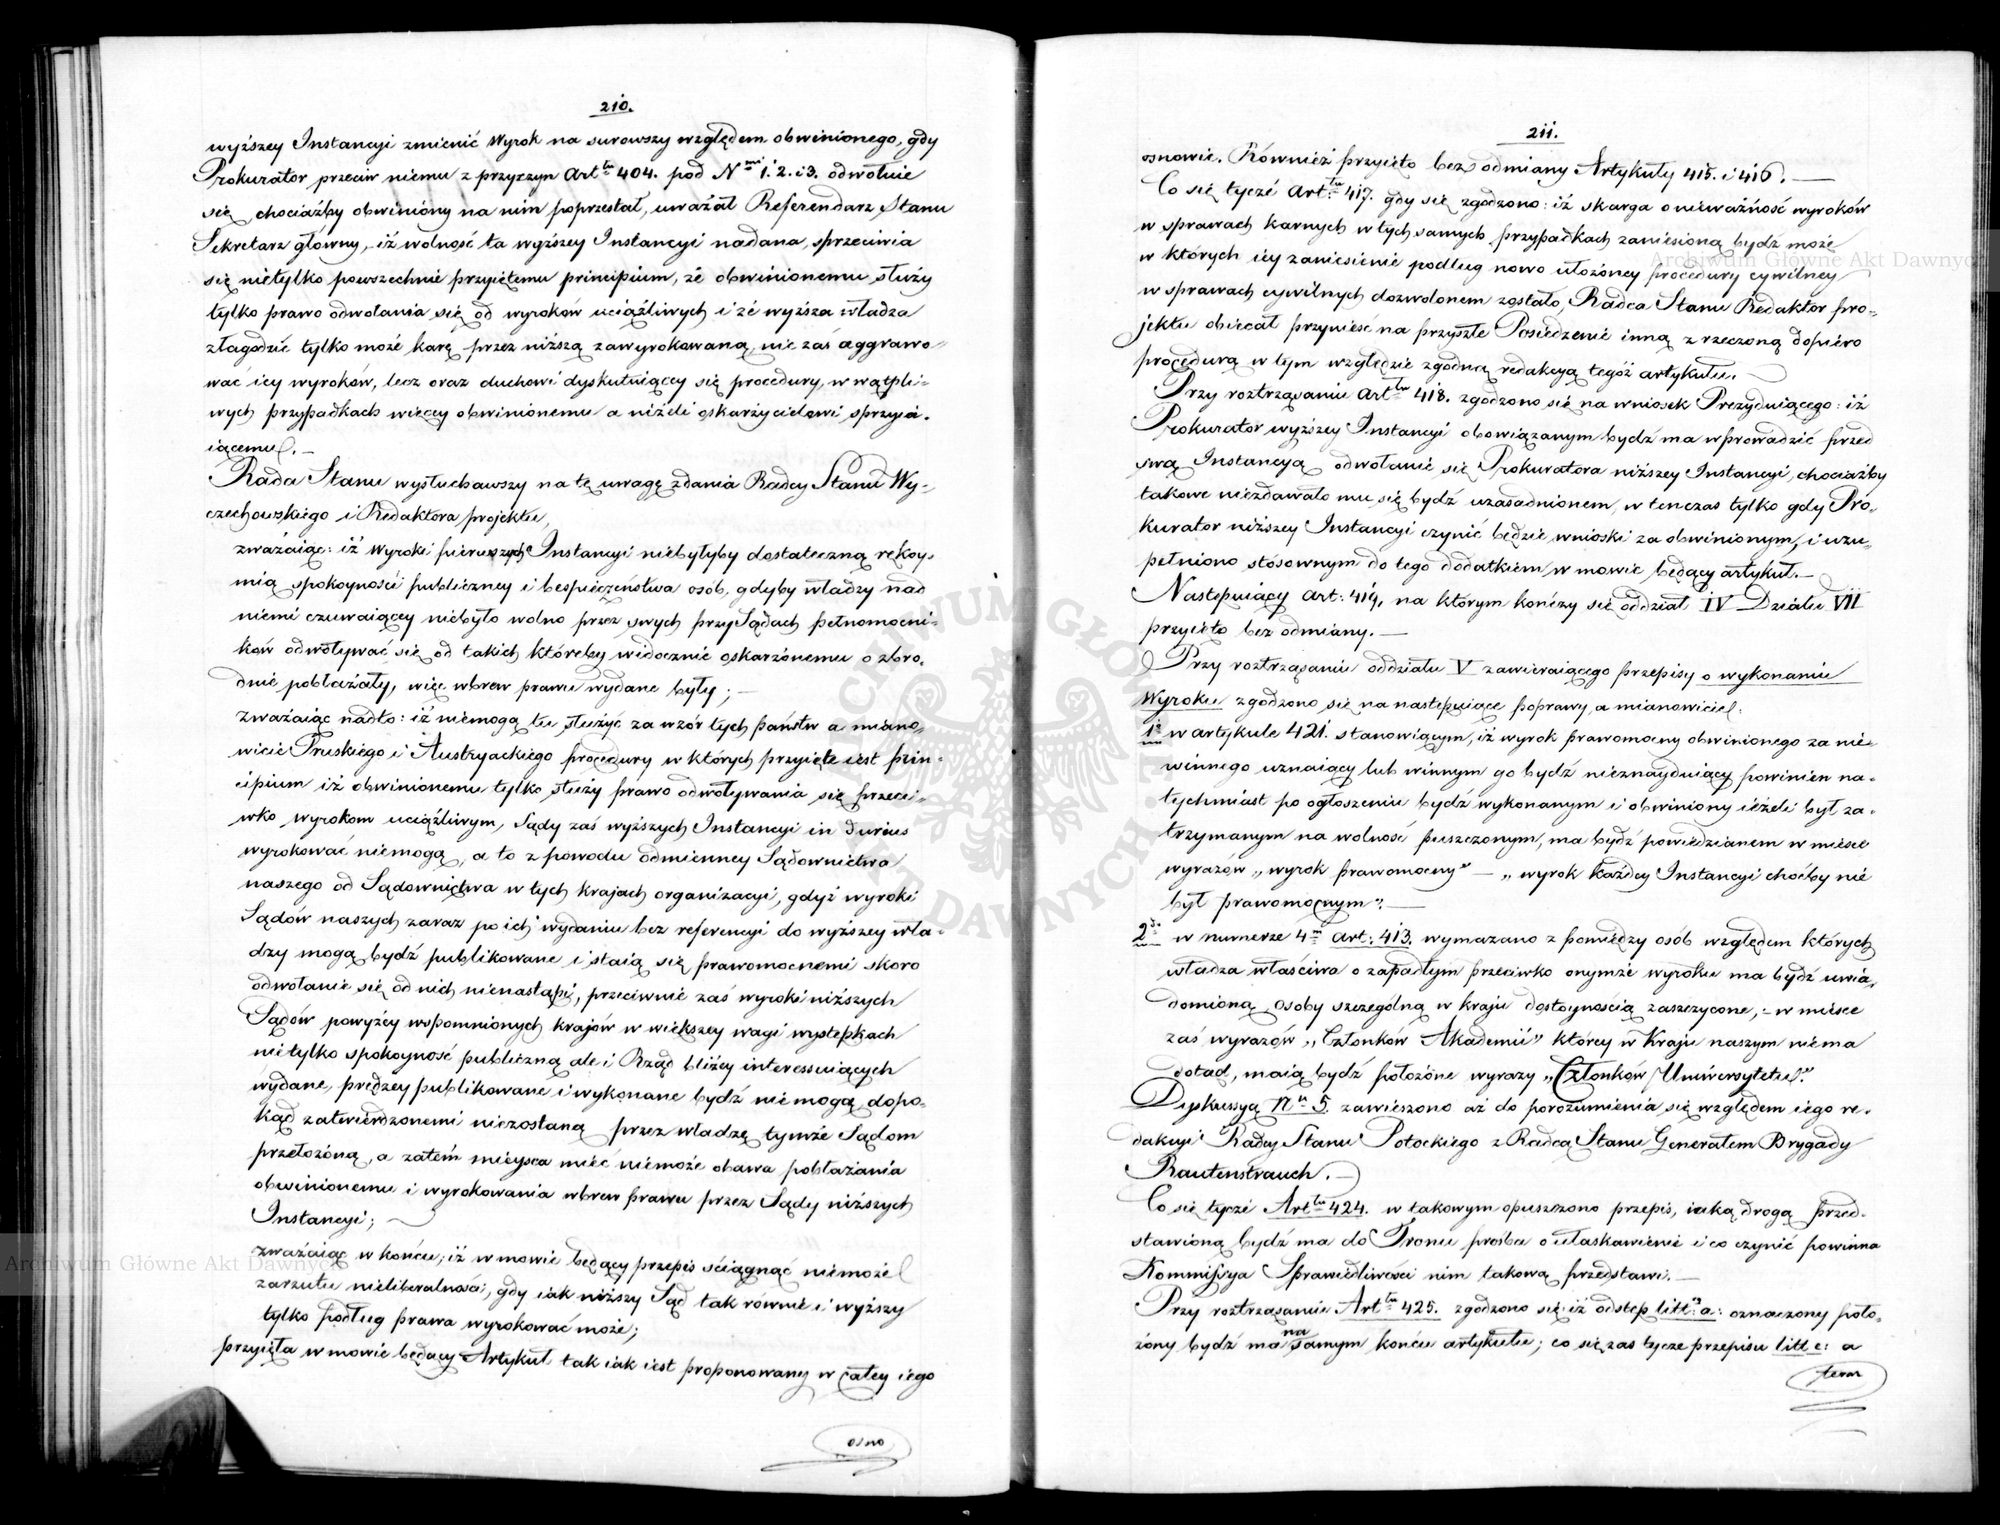 210.
wyższey Instancyi zmienić Wyrok na surowszy względem obwinionego, gdy
Prokurator przeciw niemu z przyczyn Art^tu 404. pod N^mi 1. 2. i 3. odwołuie
się, chociażby obwiniony na nim poprzestał, uważał Referendarz Stanu
Sekretarz główny, iż wolność ta wyższey Instancyi nadana, sprzeciwia
się nietylko powszechnie przyiętemu principium, że obwinionemu służy
tylko prawo odwołania się od wyroków uciążliwych i że wyższa władza
złagodzić tylko może karę przez niższą zawyrokowaną, nie zaś aggrawo-
wać iey wyroków, lecz oraz duchowi dyskutuiącey się procedury, w wątpli-
wych przypadkach więcey obwinionemu a niżeli oskarżycielowi sprzyia-
iącemu. —
Rada Stanu wysłuchawszy na tę uwagę zdania Radcy Stanu Wy-
czechowskiego i Redaktora projektu,
zważaiąc: iż wyroki pierwszych Instancyi niebyłyby dostateczną rękoy-
mią spokoyności publiczney i bespieczeństwa osób, gdyby władzy nad
niemi czuwaiącey niebyło wolno przez swych przy Sądach pełnomocni-
ków odwoływać się od takich któreby widocznie oskarżonemu o zbro-
dnie pobłażały, więc wbrew prawu wydane były; —
zważaiąc nadto: iż niemogą tu służyć za wzór tych państw a miano-
wicie Pruskiego i Austryackiego procedury w których przyięte iest prin-
cipium iż obwinionemu tylko służy prawo odwoływania się przeci-
wko wyrokom uciążliwym, Sądy zaś wyższych Instancyi in durius
wyrokować niemogą, a to z powodu odmienney Sądownictwa
naszego od Sądownictwa w tych krajach organizacyi, gdyż wyroki
Sądów naszych zaraz po ich wydaniu bez referencyi do wyższey wła-
dzy mogą bydź publikowane i staią się prawomocnemi skoro
odwołanie się od nich nienastąpi, przeciwnie zaś wyroki niższych
Sądów powyżey wspomnionych krajów w większey wagi występkach
nietylko spokoyność publiczną ale i Rząd bliżey interessuiących
wydane, prędzey publikowane i wykonane bydź niemogą, dopo-
kąd zatwierdzonemi niezostaną przez władzę tymże Sądom
przełożoną, a zatém mieysca mieć niemoże obawa pobłażania
obwinionemu i wyrokowania wbrew prawu przez Sądy niższych
Instancyi; —
zważaiąc w końcu; iż w mowie będący przepis ściągnąć niemoże
zarzutu nieliberalności, gdy iak niższy Sąd tak równie i wyższy
tylko podług prawa wyrokować może;
przyięła w mowie będący Artykuł tak iak iest proponowany w całey iego
osno
211.
osnowie. Również przyięto bez odmiany Artykuły 415. i 416. —
Co się tycze Art^tu 417. gdy się zgodzono: iż skarga o nieważność wyroków
w sprawach karnych w tych samych przypadkach zaniesioną bydź może
w których iey zaniesienie podług nowo ułożoney procedury cywilney
w sprawach cywilnych dozwolonem zostało, Radca Stanu Redaktor pro-
jektu obiecał przynieść na przyszłe Posiedzenie inną z rzeczoną dopiero
procedurą w tym względzie zgodną redakcyą tegóż artykułu. —
Przy roztrząsaniu Art^tu 418. zgodzono się na wniosek Prezyduiącego: iż
Prokurator wyższey Instancyi obowiązanym bydź ma wprowadzić przed
swą Instancyą odwołanie się Prokuratora niższey Instancyi, chociażby
takowe niezdawało mu się bydź uzasadnionem, w tenczas tylko gdy Pro-
kurator niższey Instancyi czynić będzie wnioski za obwinionym, i uzu-
pełniono stósownym do tego dodatkiem w mowie będący artykuł. —
Następuiący Art: 419, na którym kończy się oddział IV Działu VII
przyięto bez odmiany. —
Przy roztrząsaniu oddziału V zawieraiącego przepisy o wykonaniu
Wyroku zgodzono się na następuiące poprawy, a mianowicie:
1^o w artykule 421. stanowiącym, iż wyrok prawomocny obwinionego za nie-
winnego uznaiący lub winnym go bydź nieznayduiący powinien na-
tychmiast po ogłoszeniu bydź wykonanym i obwiniony ieżeli był za-
trzymanym na wolność puszczonym, ma bydź powiedzianem w miesce
wyrazów „wyrok prawomocny” — „wyrok każdey Instancyi choćby nie
był prawomocnym”. —
2^do w numerze 4^m Art: 413. wymazano z pomiędzy osób względem których
władza właściwa o zapadłym przeciwko onymże wyroku ma bydź uwia-
domioną, osoby szczególną w kraju dostoynością zaszczycone, — w miesce
zaś wyrazów „Członków Akademii” którey w Kraju naszym niema
dotąd, maią bydź położone wyrazy „Członków Uniwersytetu”.
Dyskussyą N^u 5. zawieszono aż do porozumienia się względem iego re-
dakcyi Radcy Stanu Potockiego z Radcą Stanu Generałem Brygady
Rautenstrauch. —
Co się tycze Art^tu 424. w takowym opuszczono przepis, iaką drogą przed-
stawioną bydź ma do Tronu prośba o ułaskawienie i co czynić powinna
Kommissya Sprawiedliwości nim takową przedstawi. —
Przy roztrząsaniu Art^tu 425. zgodzono się: iż odstęp litt^a a: oznaczony poło-
żony bydź ma na samym końcu artykułu; co się zaś tycze przepisu litt c: a
tem
Archiwum Główne Akt Dawnych
Archiwum Główne Akt Dawnych
ARCHIWUM GŁÓWNE AKT DAWNYCH